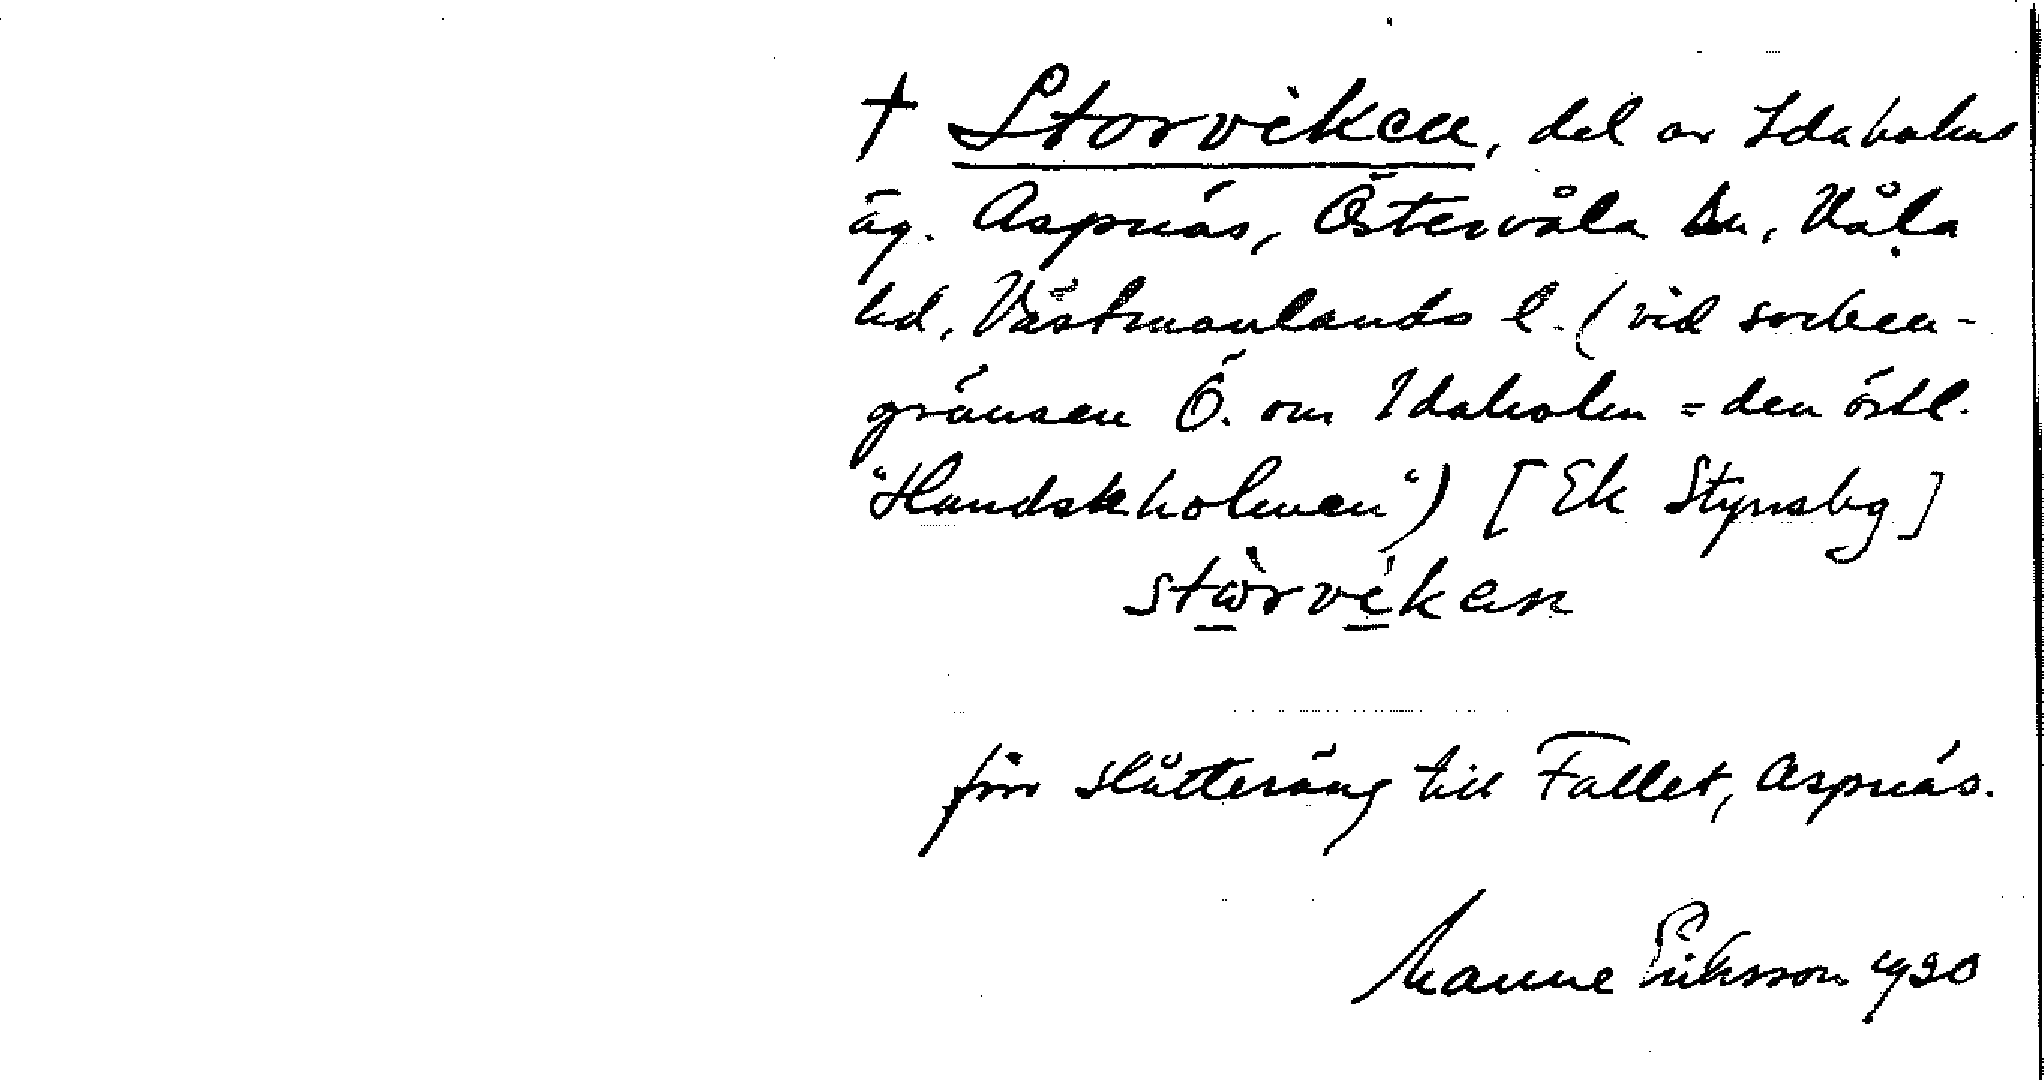 † Storviken, del av Idaholms
äg. Aspnäs, Östervåla sn, Våla
hd, Västmanlands l. (vid socken-
gränsen Ö. om Idaholm = den östl.
"Handskholmen") [Ek
stòrvikan
förr slåtteräng till Fallet, Aspnäs.
Manne Eriksson 1930